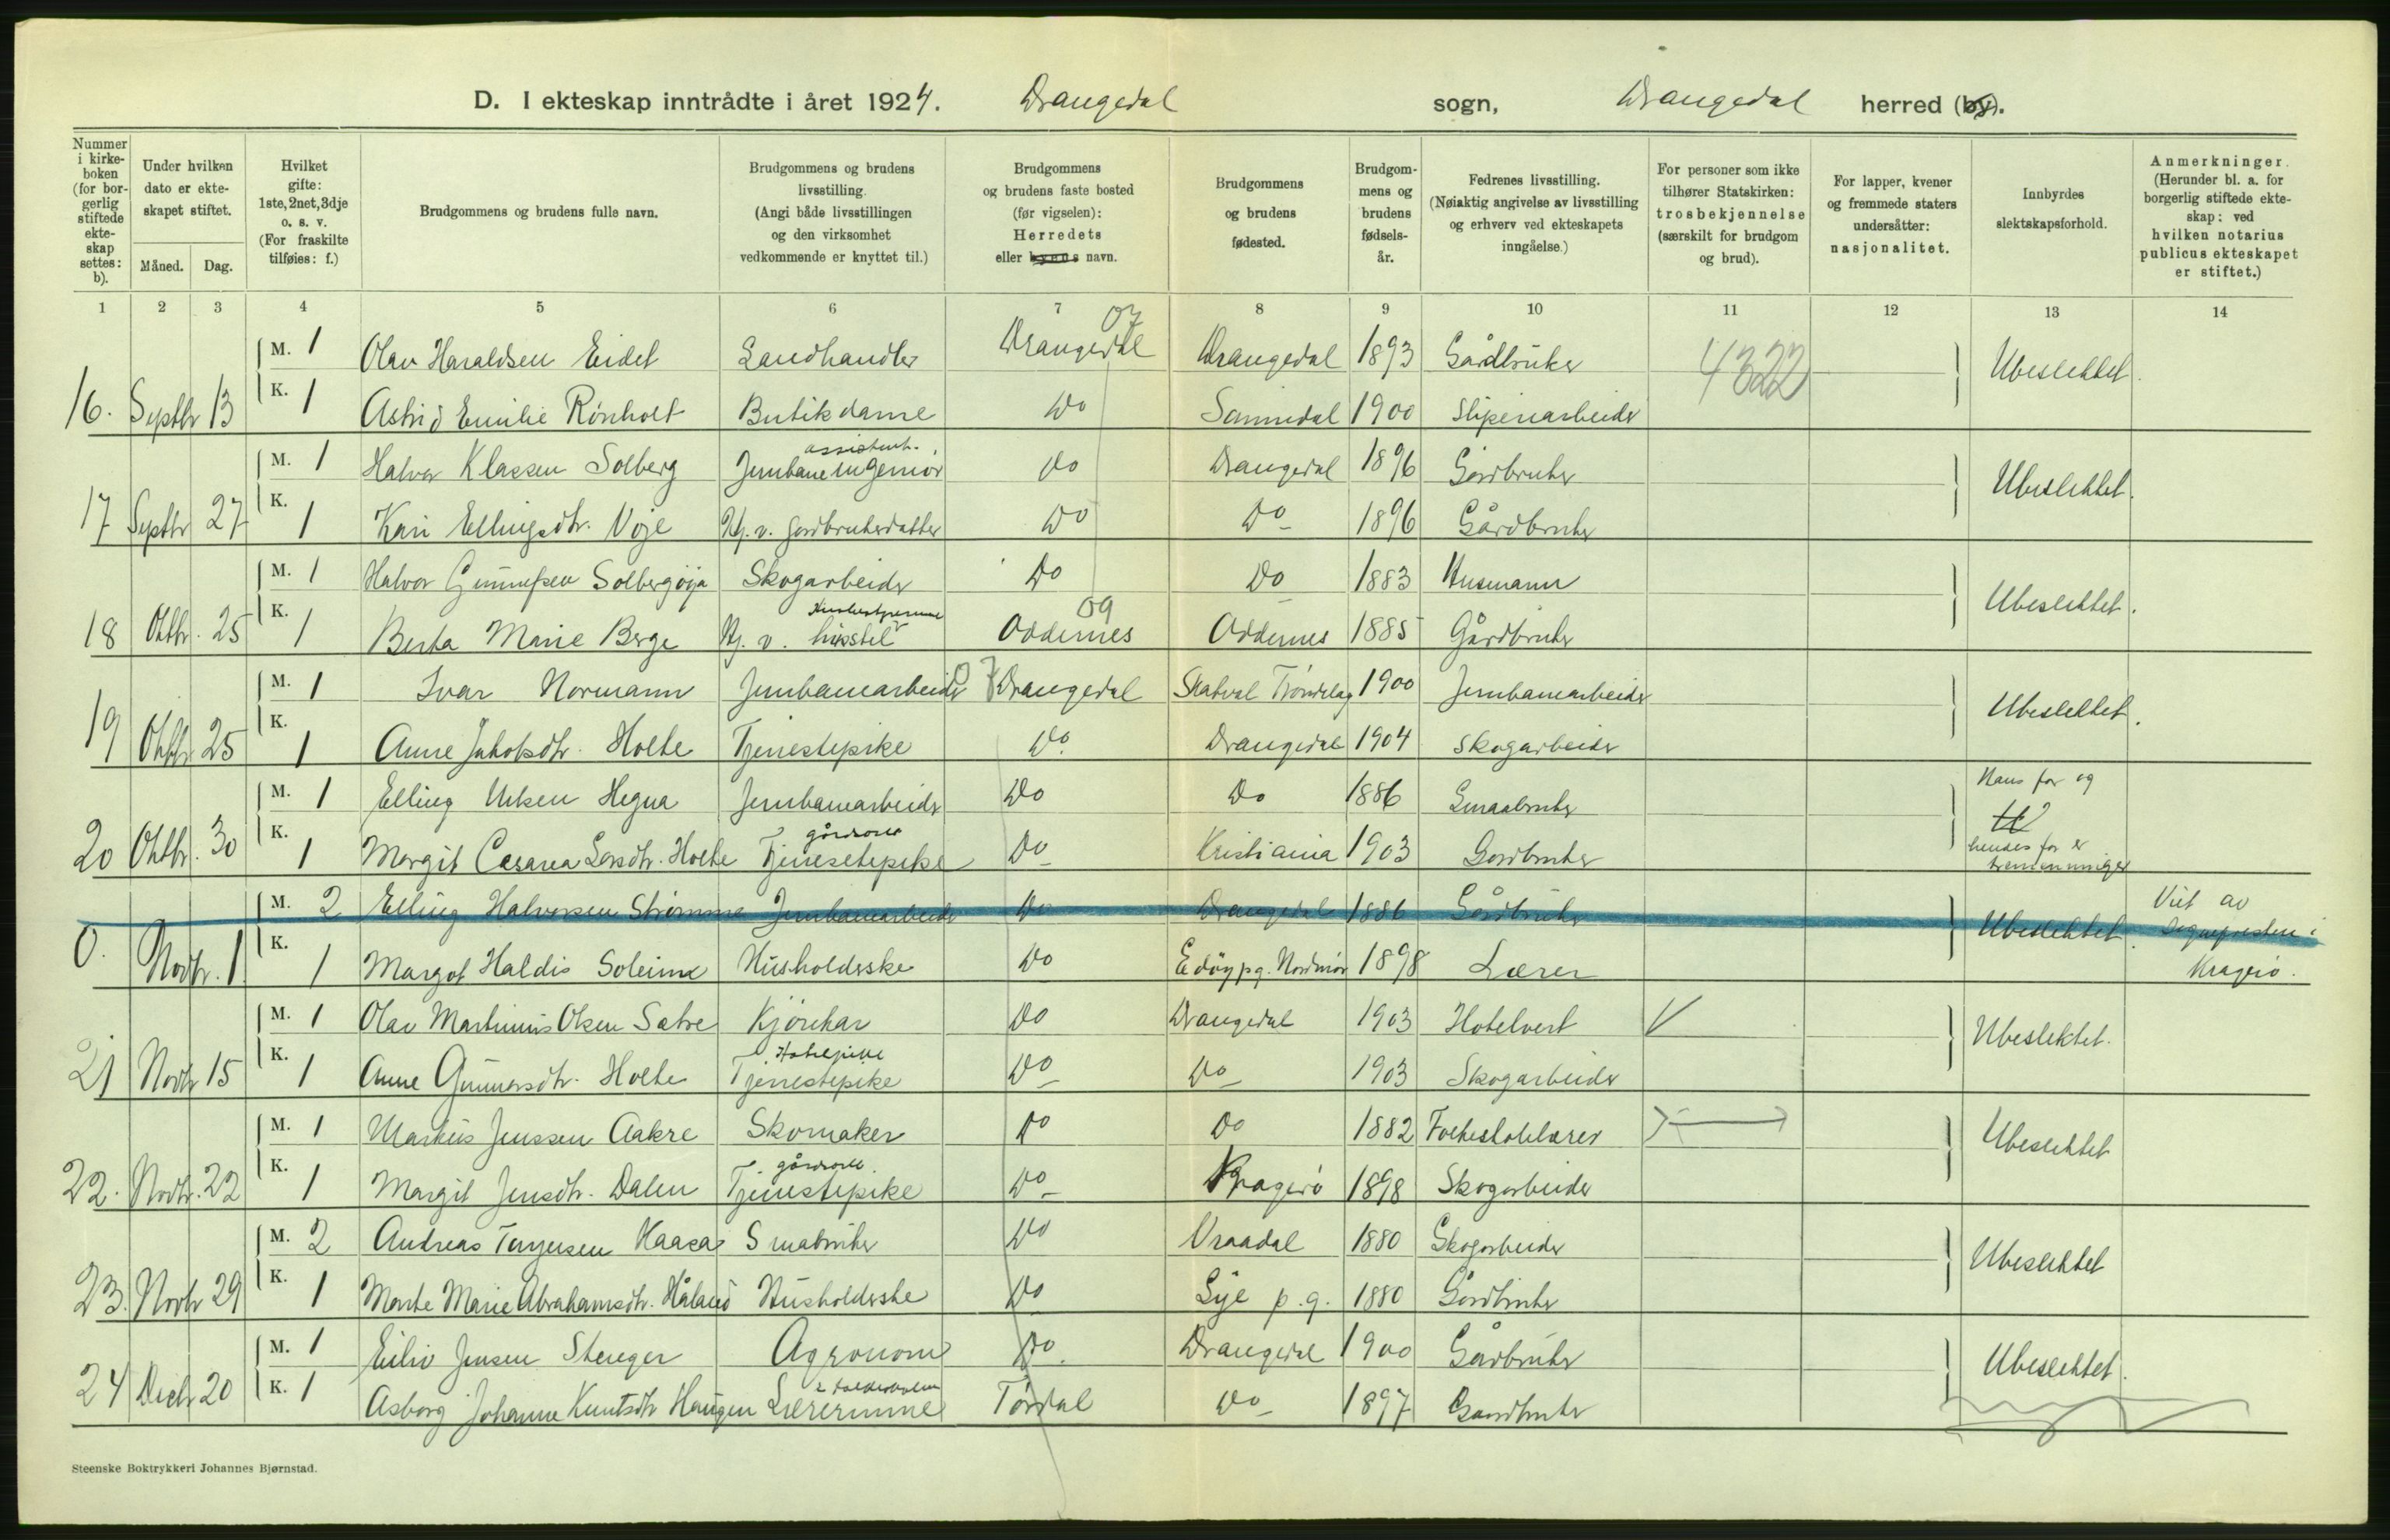 D. I ekteskap inntrådte i året 1924. Drangedal sogn, Drangedal herred (by).
Nummer i kirkeboken (for borgerlig stiftede ekteskap settes: b).
Under hvilken dato er ekteskapet stiftet.
Måned. Dag.
Hvilket gifte: 1ste, 2net, 3dje o. s. v. (For fraskilte tilføies: f.)
Brudgommens og brudens fulle navn.
Brudgommens og brudens livsstilling. (Angi både livsstillingen og den virksomhet vedkommende er knyttet til.)
Brudgommens og brudens faste bosted (før vigselen): Herredets eller byens navn.
Brudgommens og brudens fødested.
Brudgommens og brudens fødselsår.
Fedrenes livsstilling. (Nøiaktig angivelse av livsstilling og erhverv ved ekteskapets inngåelse.)
For personer som ikke tilhører Statskirken: trosbekjennelse (særskilt for brudgom og brud).
For lapper, kvener og fremmede staters undersåtter: nasjonalitet.
Innbyrdes slektskapsforhold.
Anmerkninger. (Herunder bl. a. for borgerlig stiftede ekteskap: ved hvilken notarius publicus ekteskapet er stiftet.)
1 2 3 4 5 6 7 8 9 10 11 12 13 14
07
M. 1 Olav Haraldsen Eidet Landhandler Drangedal Drangedal 1893 Gårdbruker 4322 Ubeslektet.
16. Septbr 13 K. 1 Astrid Emilie Rönholt Butikdame Do Sannidal 1900 Sliperiarbeider
assistent.
M. 1 Halvor Klassen Solberg Jernbaneingeniör Do Drangedal 1896 Gårdbruker Ubeslektet.
17 Septbr 27 K. 1 Kari Ellingsdtr. Voje Hj. v. gårdbrukerdatter Do Do 1896 Gårdbruker
M. 1 Halvor Gunnufsen Solbergöya Skogarbeider Do Do 1883 Husmann Ubeslektet.
Husbestyrerinne 09
18 Oktbr. 25 K. 1 Berta Marie Berge Hj. v. husstel Oddernes Oddernes 1885 Gårdbruker
M. 1 Ivar Normann Jernbanearbeider 07 Drangedal Skatval Tröndelag 1900 Jernbanearbeider Ubeslektet.
19 Oktbr. 25 K. 1 Anne Jakobsdtr. Holte Tjenestepike Do. Drangedal 1904 Skogarbeider
M. 1 Elling Hegna Jernbanearbeider Do Do 1886 Smaabruker Hans far og
gårdsarb.
20 Oktbr. 30 K. 1 Margit Cesarea Larsdtr. Holte Tjenestepike Do Kristiania 1903 Gardbruker hendes far er tremenninger
M. 2 Elling Halvorsen Strömme Jernbanearbeider Do Drangedal 1886 Gårdbruker Ubeslektet. Viet av Sogneprestens i Kragerö.
0. Novbr. 1 K. 1 Margot Haldis Soleim Husholderske Do Edöy pg. Nordmör 1898 Lærer
M. 1 Olav Martinius Olsen Sætre Kjörekar Do Drangedal 1903 Hotelvert V Ubeslektet.
Hotelpike
21 Novbr 15 K. 1 Anne Gunnarsdtr. Holte Tjenestepike Do Do 1903 Skogarbeider
M. 1 Markus Jenssen Aakre Skomaker Do Do 1882 Folkeskolelærer Ubeslektet
gårdsarb.
22. Novbr. 22 K. 1 Margit Jensdtr. Dalen Tjenestepike Do Kragerö 1898 Skogarbeider
M. 2 Andreas Terjersen Kaasa Småbruker Do Vraadal 1880 Skogarbeider Ubeslektet
23. Novbr 29 K. 1 Marte Marie Abrahamsdtr. Håland Husholderske Do Lye p.g. 1880 Gårdbruker
M. 1 Eiliv Jensen Stenger Agronom Do. Drangedal 1900 Gårdbruker Ubeslektet.
i folkeskolen
24 Decbr 20 K. 1 Asborg Johanne Knutsdtr Haugen Lærerinne Tördal Do 1897 Gaardbruker
Steenske Boktrykkeri Johannes Bjørnstad.